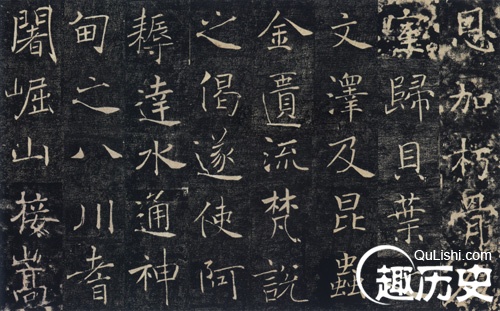 恩加朽骨
歸貝葉
文澤及昆蟲
金匱流梵說
之偈遂使阿
耨達水通神
甸之八川耆
闍崛山接嵩
QuLishi.com
趣历史